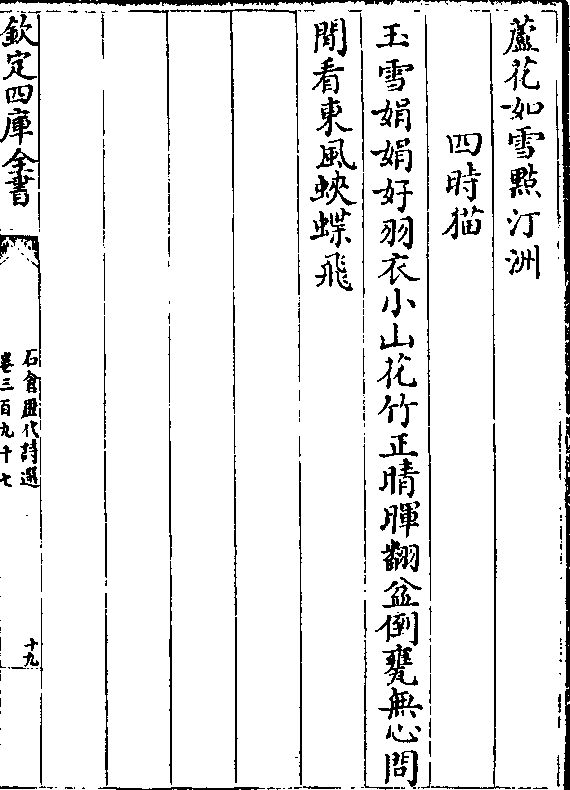 蘆花如雪㸃汀洲
四時猫
玉雪娟娟好羽衣小山花竹正晴暉翻盆倒甕無心問
閒看東風蛺蝶飛
欽定四庫全書
石倉歷代詩選
卷三百九十七
十九